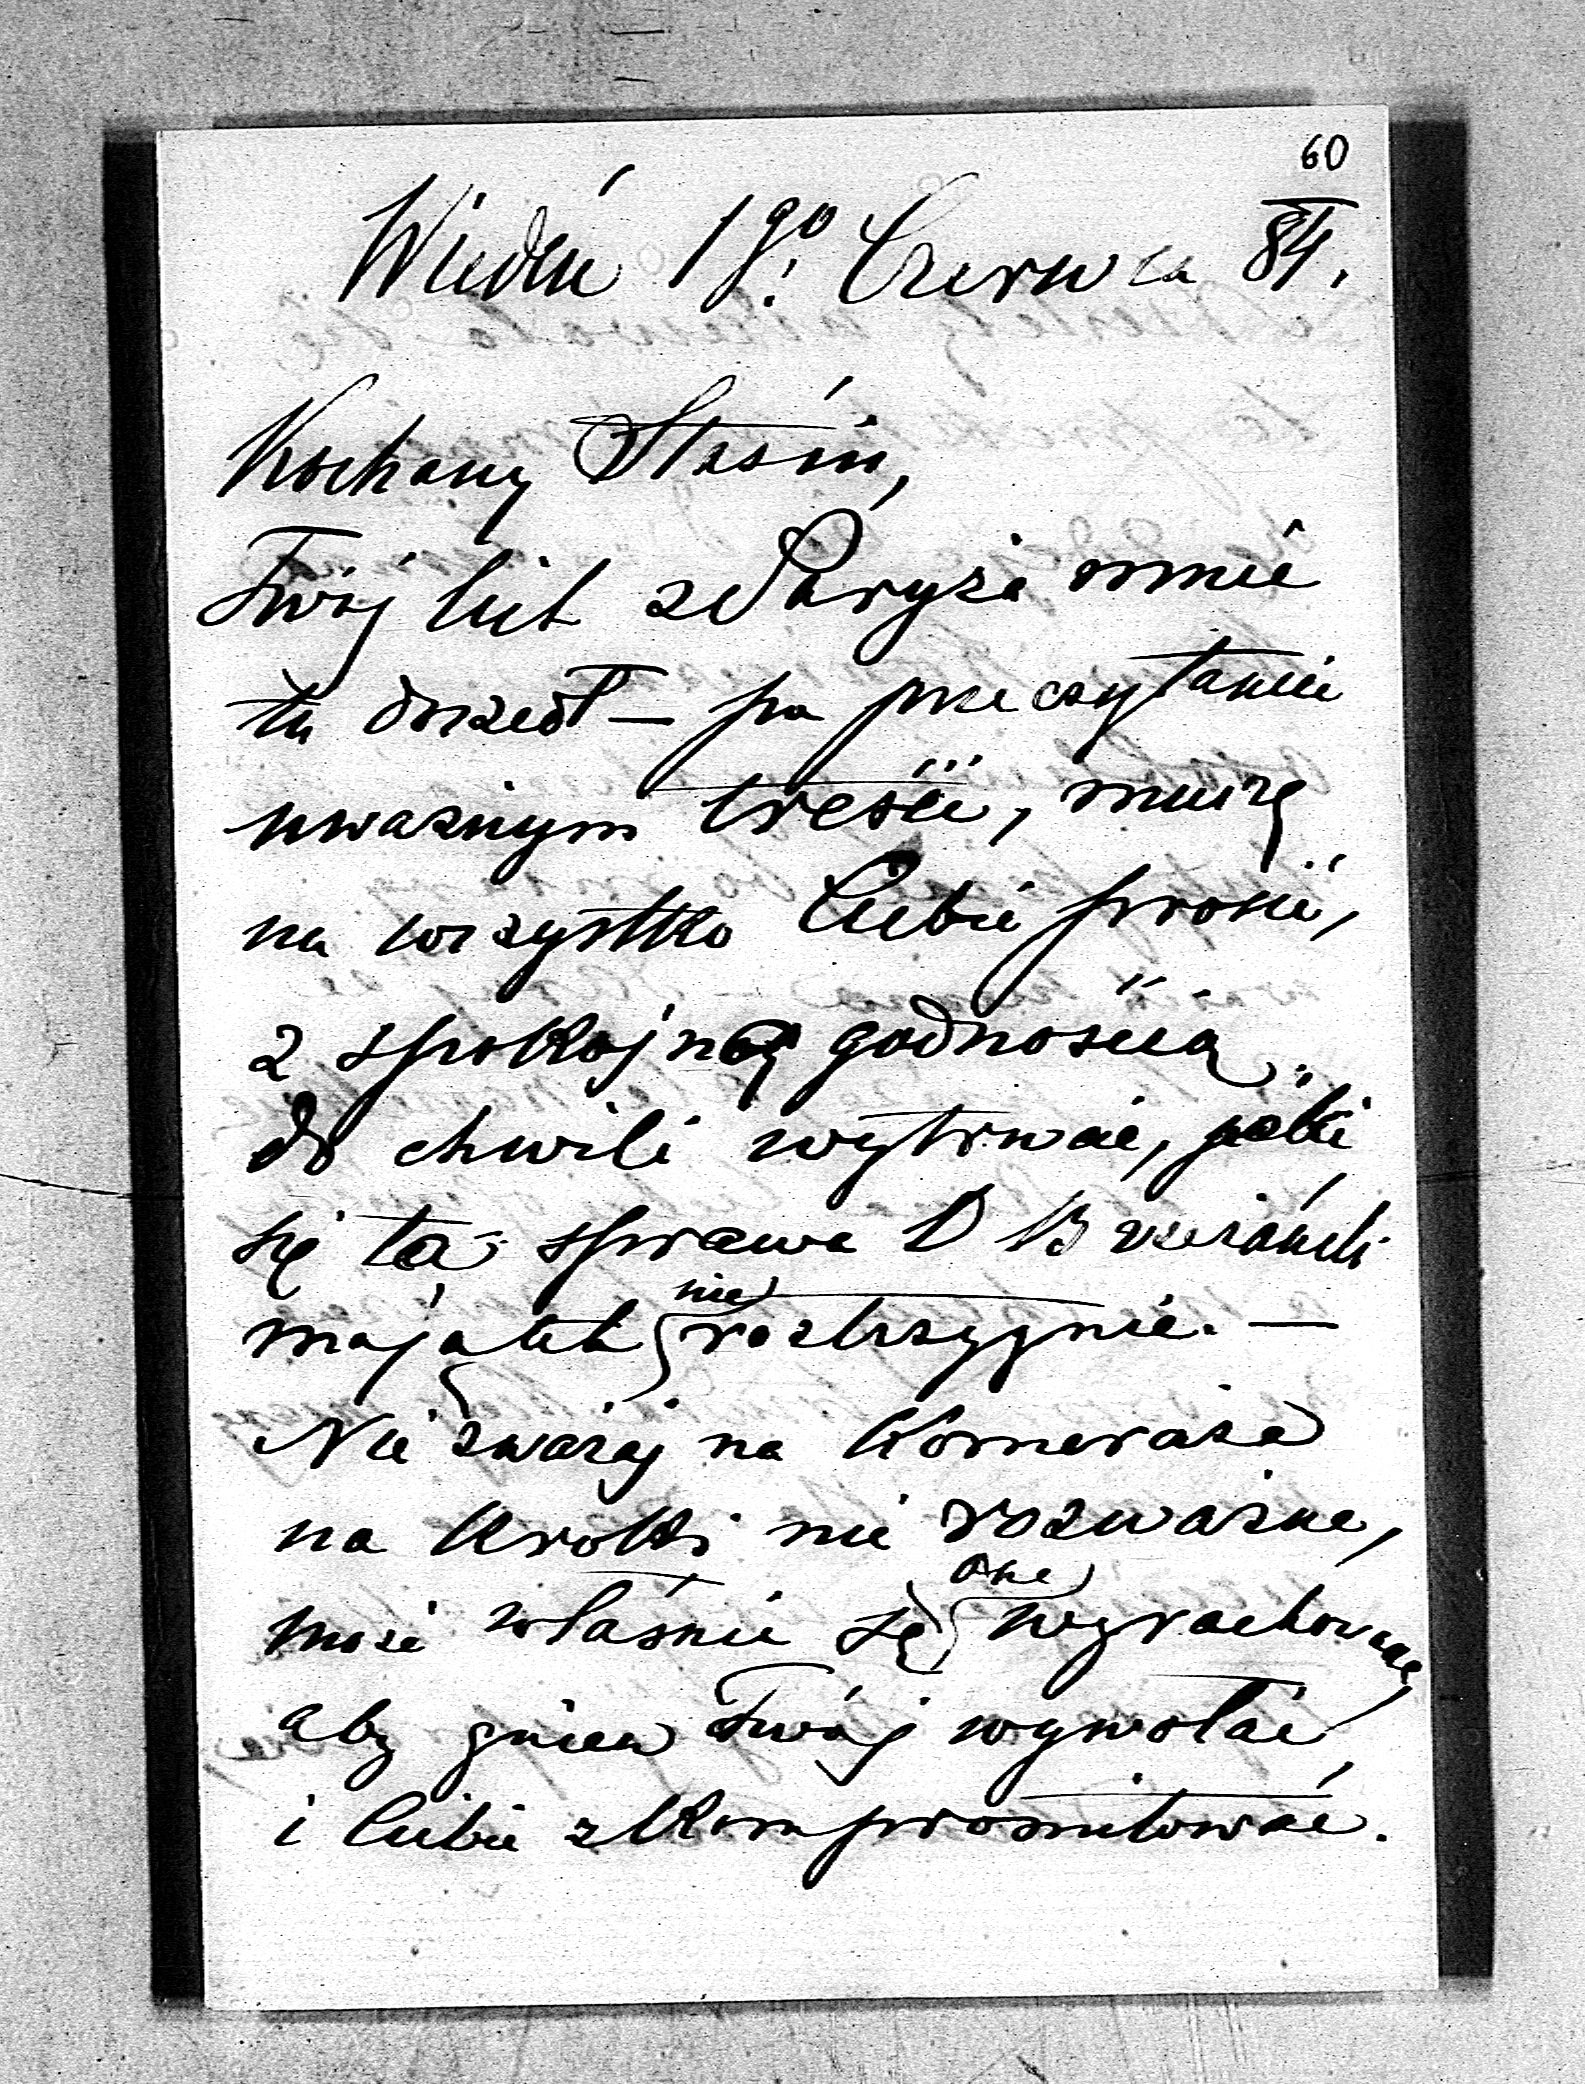 60
Wiedeń 1go. Czerwca 84.
Kochany Stasiu,
Twój list z Paryża mnie
tu doszedł — po przeczytaniu
uważnym treści, muszę
na wszystko Ciebie prosić,
z spokojną godnością
do chwili wytrwać, póki
się ta sprawa D
majątek nie rozstrzygnie. —
Nie zważaj na Komeraże
na kroki nie rozważne,
może właśnie są one wyrachowane,
aby gniew Twój wywołać,
i Ciebie zkompromitować.